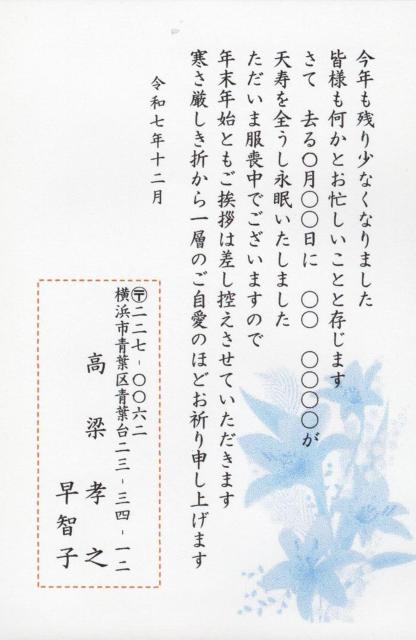 今年も残り少なくなりました
皆様も何かとお忙しいことと存じます
さて　去る〇月〇〇日に　〇〇　〇〇〇〇が
天寿を全うし永眠いたしました
ただいま服喪中でございますので
年末年始ともご挨拶は差し控えさせていただきます
寒さ厳しき折から一層のご自愛のほどお祈り申し上げます
令和七年十二月
〒二二七-〇〇六二
横浜市青葉区青葉台二三-三四-一二
高梁孝之
早智子